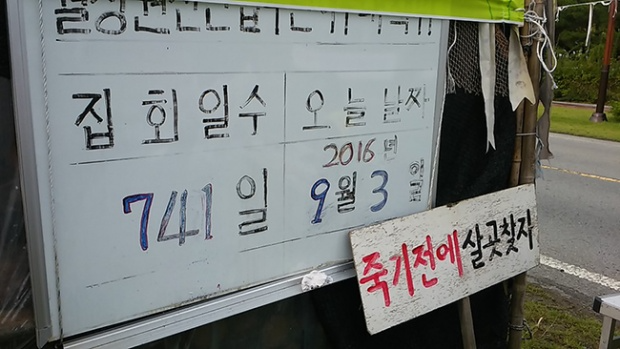 집회일수 오늘날자
741일 2016년
9월 3일
죽기전에 살곳찾자